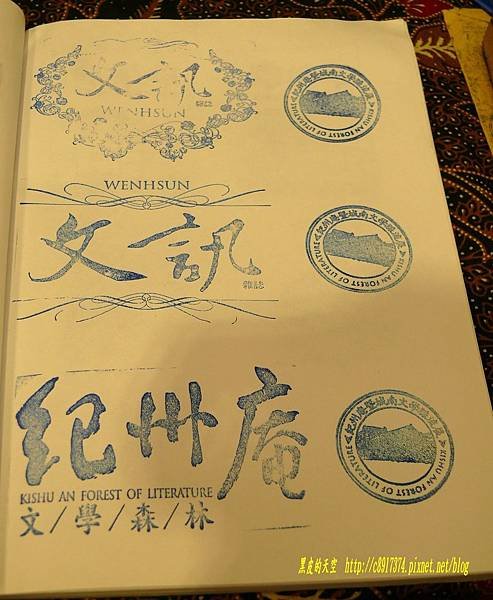 文訊
雜誌
WENHSUN
KISHU AN FOREST OF LITERATURE
WENHSUN
文訊
雜誌
KISHU AN FOREST OF LITERATURE
紀州庵
KISHU AN FOREST OF LITERATURE
文/學/森/林
KISHU AN FOREST OF LITERATURE
黑皮的天空 http://c8917374.pixnet.net/blog